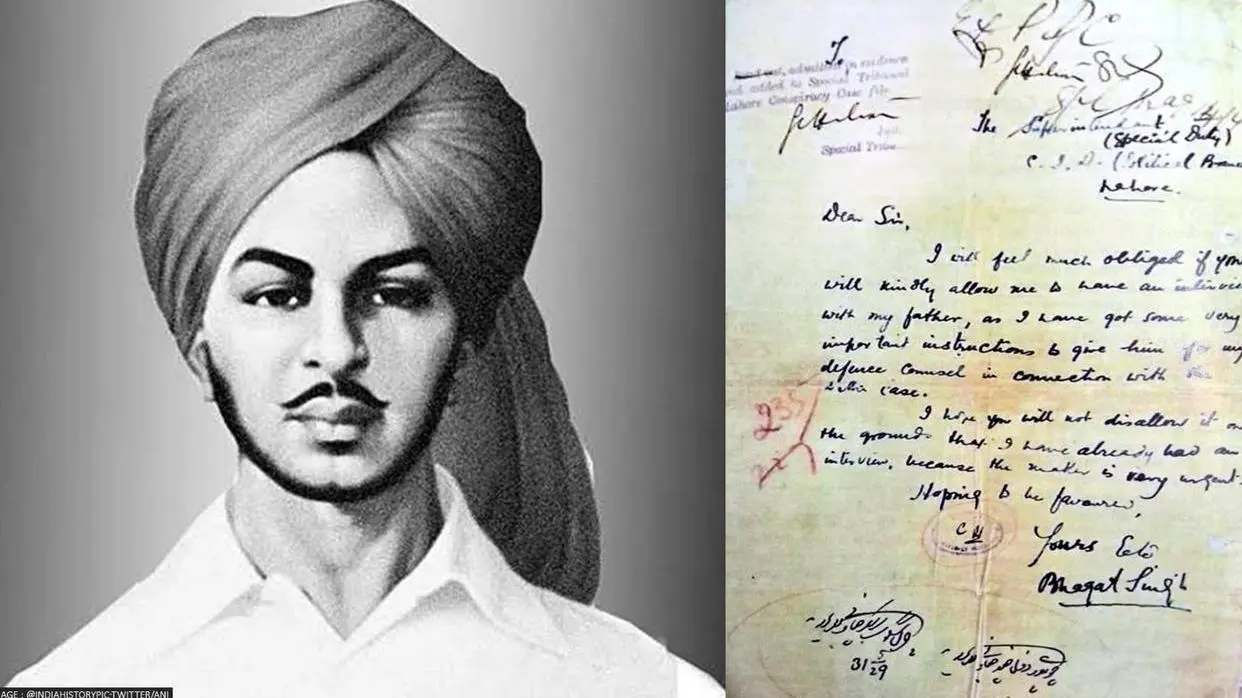 To,
and added to Special Tribunal
Lahore Conspiracy Case file.
Special Tribu
The Superintendent
(Special Duty)
C. I. D. (Political Branc
Lahore.
Dear Sir,
I will feel much obliged if you
will kindly allow me to have an intervie
with my father, as I have got some very
important instructions to give him for my
defence counsel in connection with the
case.
I hope you will not disallow it on
the grounds that I have already had an
interview, because the matter is very urgent.
Hoping to be favoured,
Yours Etc
Bhagat Singh
235
31 5/29
AGE : @INDIAHISTORYPIC-TWITTER/ANI